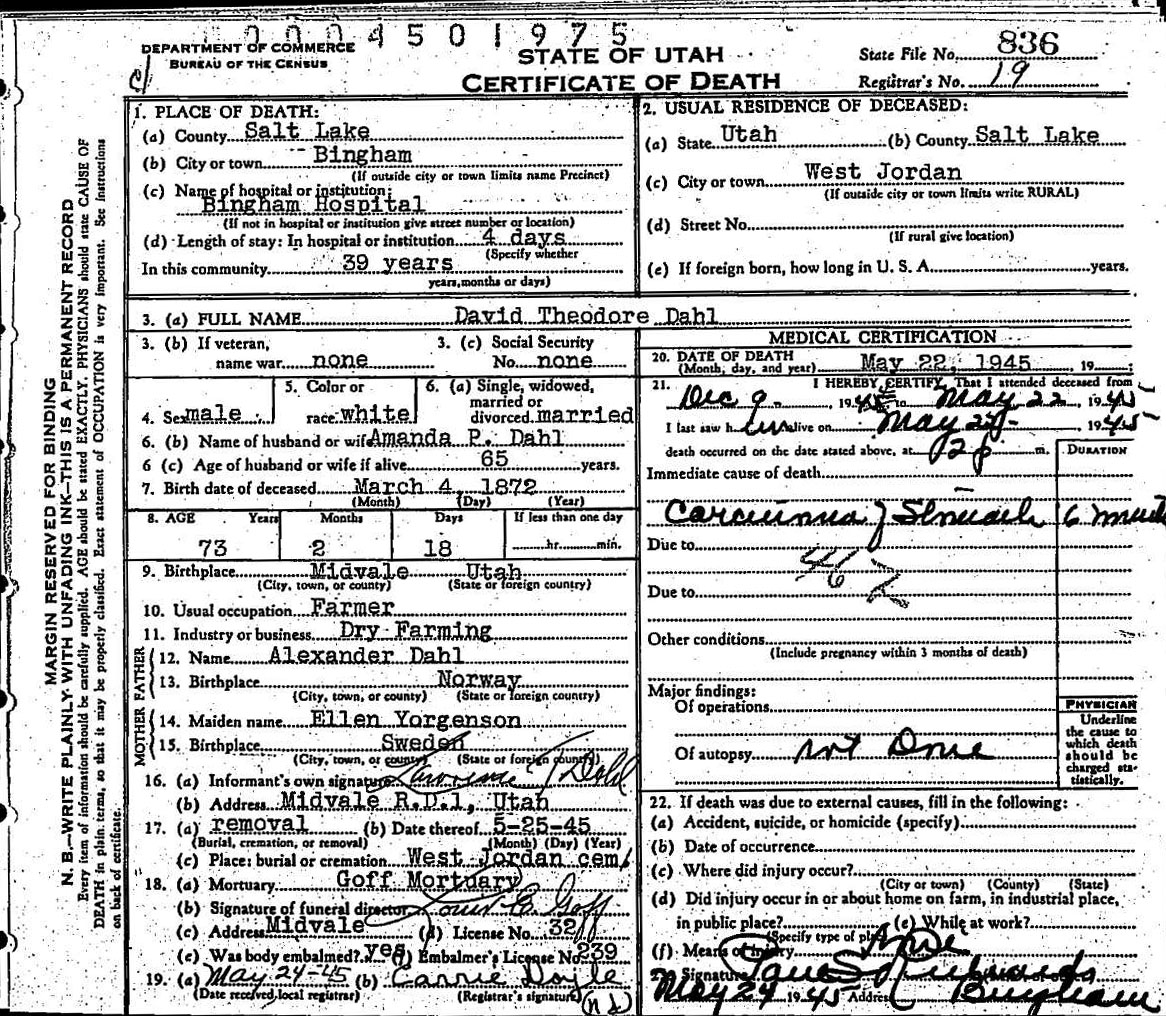 0004501975
DEPARTMENT OF COMMERCE
BUREAU OF THE CENSUS
STATE OF UTAH
CERTIFICATE OF DEATH
State File No. 836
Registrar's No. 19
MARGIN RESERVED FOR BINDING
N. B.—WRITE PLAINLY WITH UNFADING INK—THIS IS A PERMANENT RECORD
Every item of information should be carefully supplied. AGE should be stated EXACTLY. PHYSICIANS should state CAUSE OF
DEATH in plain terms, so that it may be properly classified. Exact statement of OCCUPATION is very important. See instructions
on back of certificate.
1. PLACE OF DEATH:
(a) County Salt Lake
(b) City or town Bingham
(If outside city or town limits name Precinct)
(c) Name of hospital or institution:
Bingham Hospital
(If not in hospital or institution give street number or location)
(d) Length of stay: In hospital or institution 4 days
(Specify whether
In this community 39 years
years, months or days)
2. USUAL RESIDENCE OF DECEASED:
(a) State Utah (b) County Salt Lake
(c) City or town West Jordan
(If outside city or town limits write RURAL)
(d) Street No.
(If rural give location)
(e) If foreign born, how long in U. S. A. years.
3. (a) FULL NAME David Theodore Dahl
3. (b) If veteran, 3. (c) Social Security
name war none No. none
4. Sex male 5. Color or race white 6. (a) Single, widowed, married or divorced married
6. (b) Name of husband or wife Amanda P. Dahl
6 (c) Age of husband or wife if alive 65 years.
7. Birth date of deceased March 4, 1872
(Month) (Day) (Year)
8. AGE Years Months Days If less than one day
73 2 18 hr. min.
9. Birthplace Midvale Utah
(City, town, or county) (State or foreign country)
10. Usual occupation Farmer
11. Industry or business Dry Farming
FATHER
12. Name Alexander Dahl
13. Birthplace Norway
(City, town, or county) (State or foreign country)
MOTHER
14. Maiden name Ellen Yorgenson
15. Birthplace Sweden
(City, town, or county) (State or foreign country)
16. (a) Informant's own signature
(b) Address Midvale R.D.1, Utah
17. (a) removal (b) Date thereof 5-25-45
(Burial, cremation, or removal) (Month) (Day) (Year)
(c) Place: burial or cremation West Jordan cem
18. (a) Mortuary Goff Mortuary
(b) Signature of funeral director Goff
(c) Address Midvale (d) License No. 32
(e) Was body embalmed? yes (f) Embalmer's License No. 239
19. (a) May 24-45 (b) Carrie Doyle
(Date received local registrar) (Registrar's signature)
MEDICAL CERTIFICATION
20. DATE OF DEATH
(Month, day, and year) May 22, 1945 19
21. I HEREBY CERTIFY, That I attended deceased from
Dec 9, 19 to May 22, 1945
I last saw h alive on May 22, 1945
death occurred on the date stated above, at 12 p m.
DURATION
Immediate cause of death
Carcinoma of Stomach 6
Due to
46
Due to
Other conditions
(Include pregnancy within 3 months of death)
Major findings:
Of operations
Of autopsy not Done
PHYSICIAN
Underline
the cause to
which death
should be
charged sta-
tistically.
22. If death was due to external causes, fill in the following:
(a) Accident, suicide, or homicide (specify)
(b) Date of occurrence
(c) Where did injury occur?
(City or town) (County) (State)
(d) Did injury occur in or about home on farm, in industrial place,
in public place? (e) While at work?
(Specify type of place)
(f) Means of injury
Signature Paul S. Richards
May 24 1945 Address Bingham